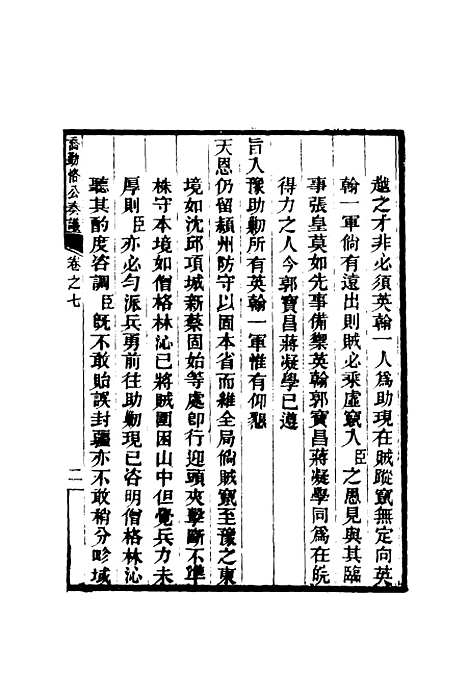 越之才非必須英翰一人為助現在賊蹤竄無定向英
翰一軍倘有遠出則賊必乘虛竄入臣之愚見與其臨
事張皇莫如先事備禦英翰郭寶昌蔣凝學同為在皖
得力之人今郭寶昌蔣凝學已遵
旨入豫助勦所有英翰一軍惟有仰懇
天恩仍留潁州防守以固本省而維全局倘賊竄至豫之東
境如沈邱項城新蔡固始等處卽行迎頭夾擊斷不準
株守本境如僧格林沁已將賊圍困山中但覺兵力未
厚則臣亦必勻派兵勇前往助勦現已咨明僧格林沁
聽其酌度咨調臣旣不敢貽誤封疆亦不敢稍分畛域
喬勤恪公奏議
卷之七
二